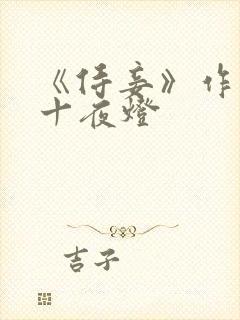 《侍妾》作
十夜燈
吉子